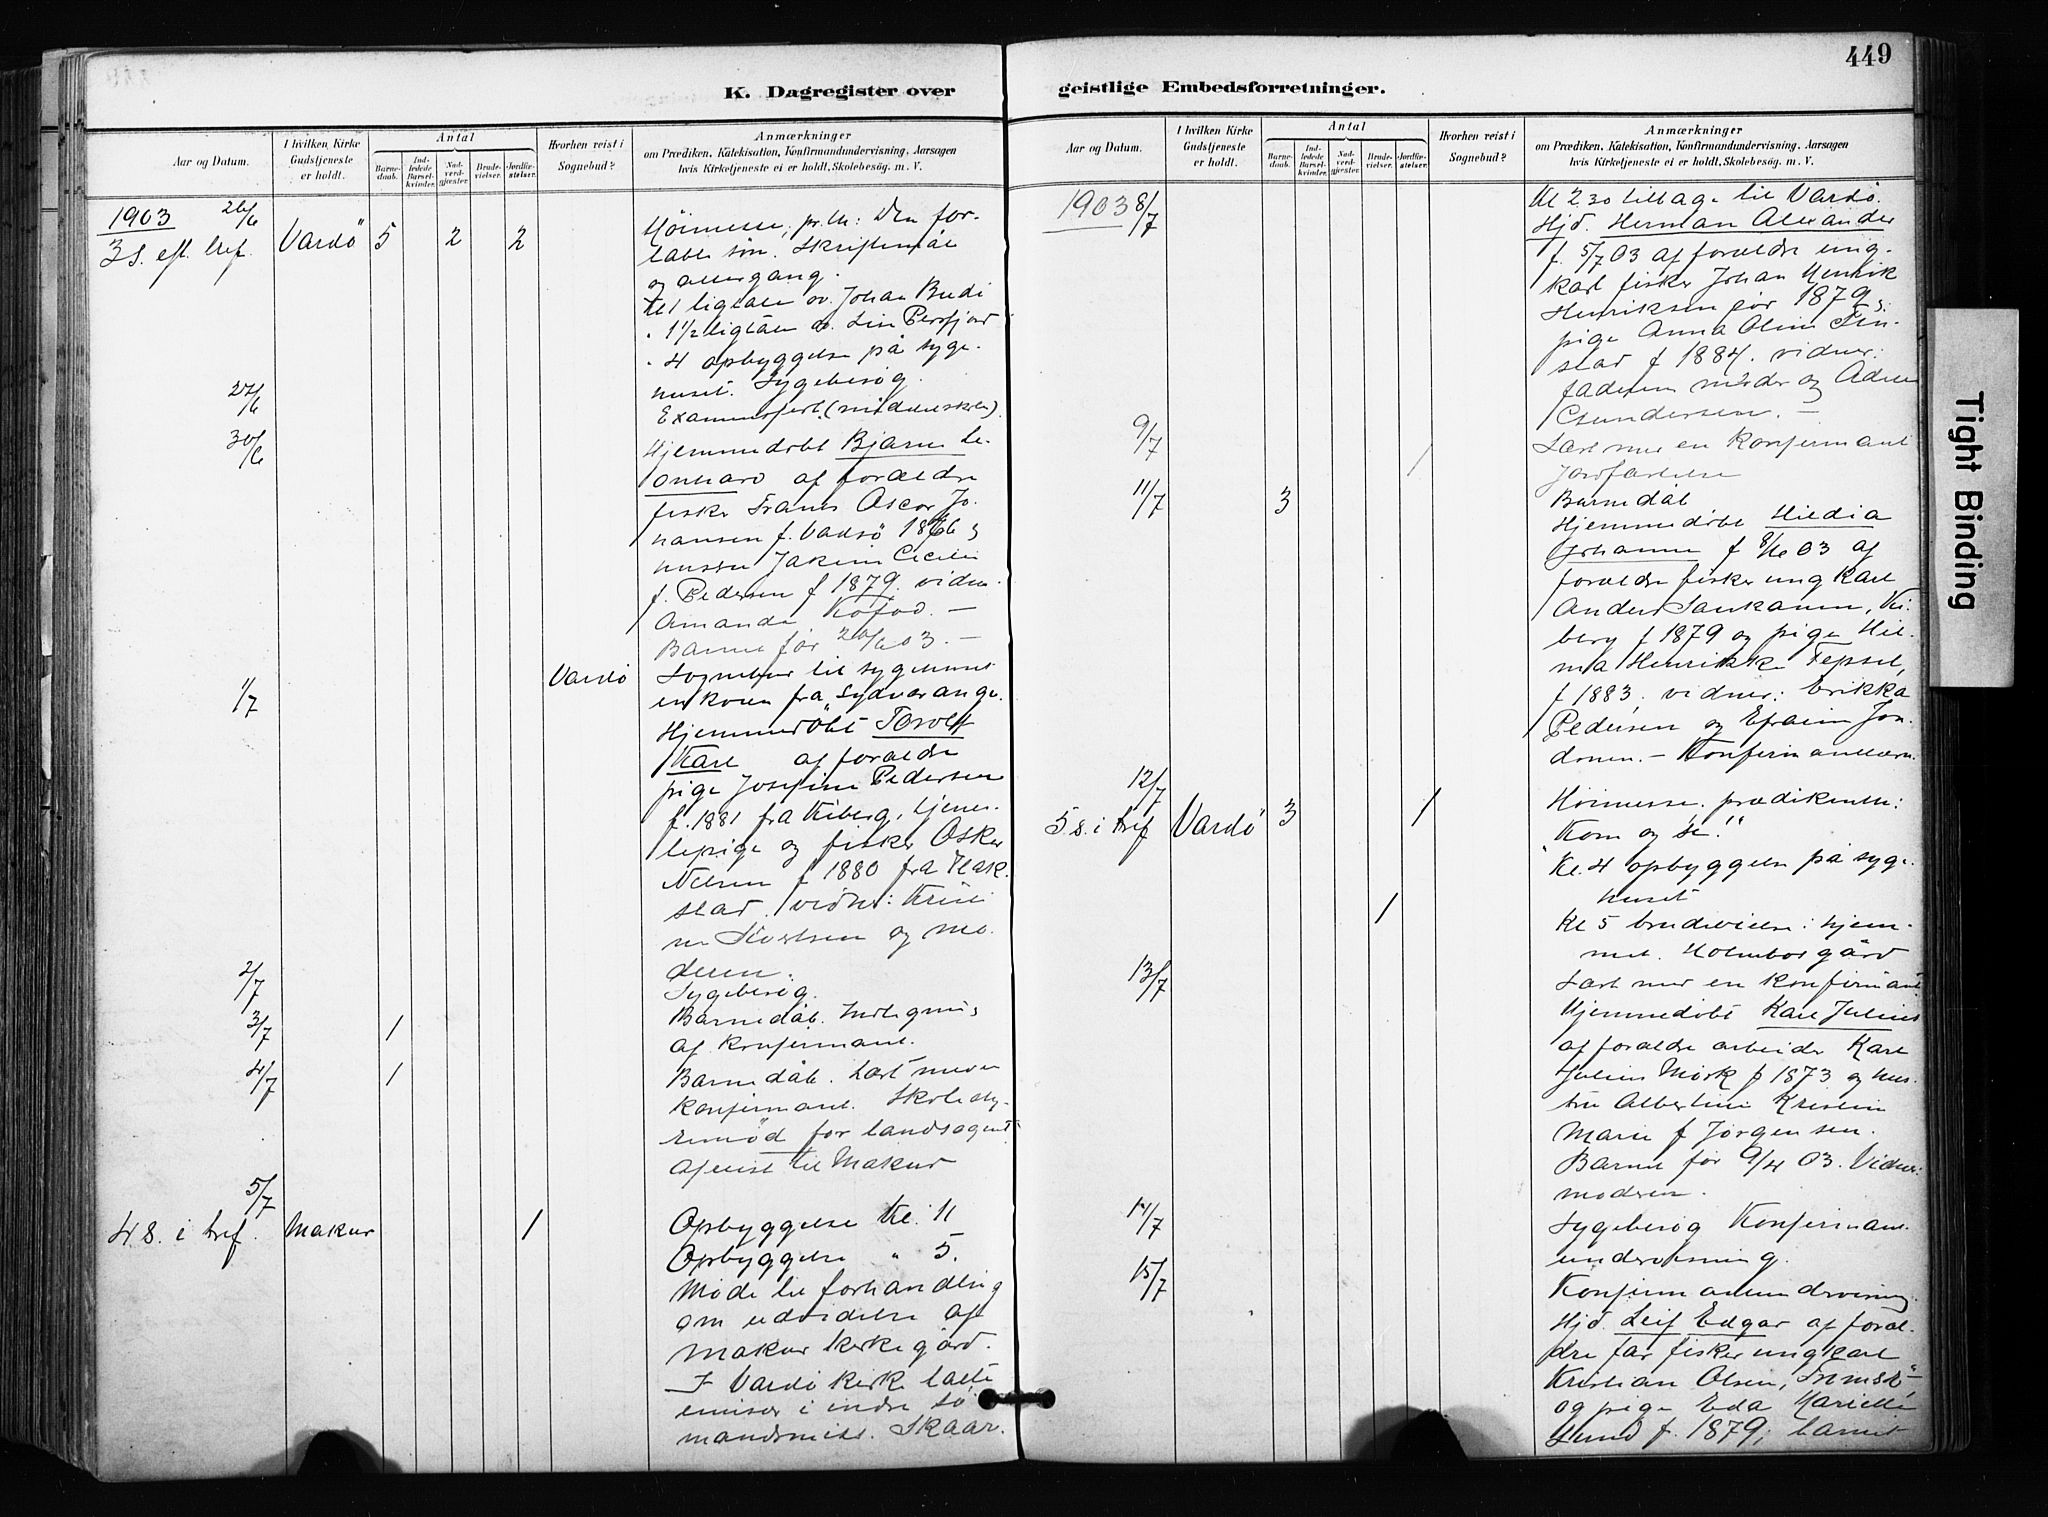 449
K. Dagregister over
geistlige Embedsforretninger.
Aar og Datum.
I hvilken Kirke Gudstjeneste er holdt.
Antal
Barnedaab.
Indledede Barselkvinder.
Nadverdgjester.
Brudevielser.
Jordfæstelser.
Hvorhen reist i Sognebud?
Anmærkninger
om Prædiken, Katekisation, Konfirmandundervisning, Aarsagen
hvis Kirketjeneste ei er holdt, Skolebesøg. m. V.
1903 26/6
3 s. eft. tref. Vardö 5 2 2
Höimesse, pr. th: Den for-
labte sön. Skriftemål
og altergang.
Kl 1 ligtale ov. Johan
" 1 1/2 ligtale ov.
" 4 opbyggelse på syge-
huset. Sygebesög.
27/6
Examensfest (middelskolen).
30/6
Hjemmedöbt Bjarne Le-
onhard af forældre
fisker Frants Oscar Jo-
hansen f. Vadsö 1876 og
hustru Jakine Cecilie
f. Pedersen f 1879. vidn.
Amanda Kofod. —
Barnet för 20/6 03. —
Vardö
Sognebud til sygehuset
en fra Sydvaranger.
1/7
Hjemmedöbt Torolf
Karl af forældre
pige Josefine Pedersen
f. 1881 fra Kiberg, tjenes-
tepige og fisker Osker
Nelsen f 1880 fra Hak-
stad. vidner:
og mo-
deren.
2/7
Sygebesög.
3/7 1
Barnedåb.
af konfirmant.
4/7 1
Barnedåb. Læst med en
konfirmant. Skolesty-
remöd for landsognet
Afreist til Makur
5/7
4. s. i tref. Makur 1
Opbyggelse Kl. 11
Opbyggelse " 5.
Möde til forhandling
om udvidelse af
Makur kirkegård.
I Vardö kirke talte
emisær i indre sö
mandsmiss. Skaar.
Aar og Datum.
I hvilken Kirke Gudstjeneste er holdt.
Antal
Barnedaab.
Indledede Barselkvinder.
Nadverdgjester.
Brudevielser.
Jordfæstelser.
Hvorhen reist i Sognebud?
Anmærkninger
om Prædiken, Katekisation, Konfirmandundervisning, Aarsagen
hvis Kirketjeneste ei er holdt, Skolebesøg. m. V.
1903 8/7
Kl 2.30 tilbage til Vardö.
Hjd. Herman Alexander
f. 5/7 03 af forældre ung-
karl fisker Johan Henrik
Henriksen för 1879 og
pige Anna Oline Fin-
stad f 1884. vidner:
faderen moder og
9/7
Læst med en konfirmant
1
Jordfæstelse
11/7 3
Barnedåb
Hjemmedöbt Hildia
Johanne f 8/6 03 af
forældre fisker ungkarl
Anders, Ki-
berg f 1879 og pige Hil-
ma Henrikke
f 1883, vidner: Erikka
Pedersen og Efraim
— Konfirmantlæsn.
12/7
5. s. i tref Vardö 3 1
Höimesse. prædikenth:
"Kom og se!"
Kl. 4 opbyggelse på syge-
huset
1
Kl 5 brudevielse i hjem-
met. Holmbos gård
13/7
Læst med en konfirmant
Hjemmedöbt Karl Julius
af forældre arbeider Karl
Julius Mörk f 1873 og hus-
tru Albertine Kristin
Marie f Jörgensen.
Barnet för 9/4 03. Vidner:
moderen.
14/7
Sygebesög Konfirmant-
undervisning.
15/7
Konfirmantundervisning.
Hjd. Leif Edgar af foræl-
dre far fisker ungkarl
Kristian Olsen, Tromsö
og pige Eda Marielle
Lund f. 1879, barnet
Tight Binding